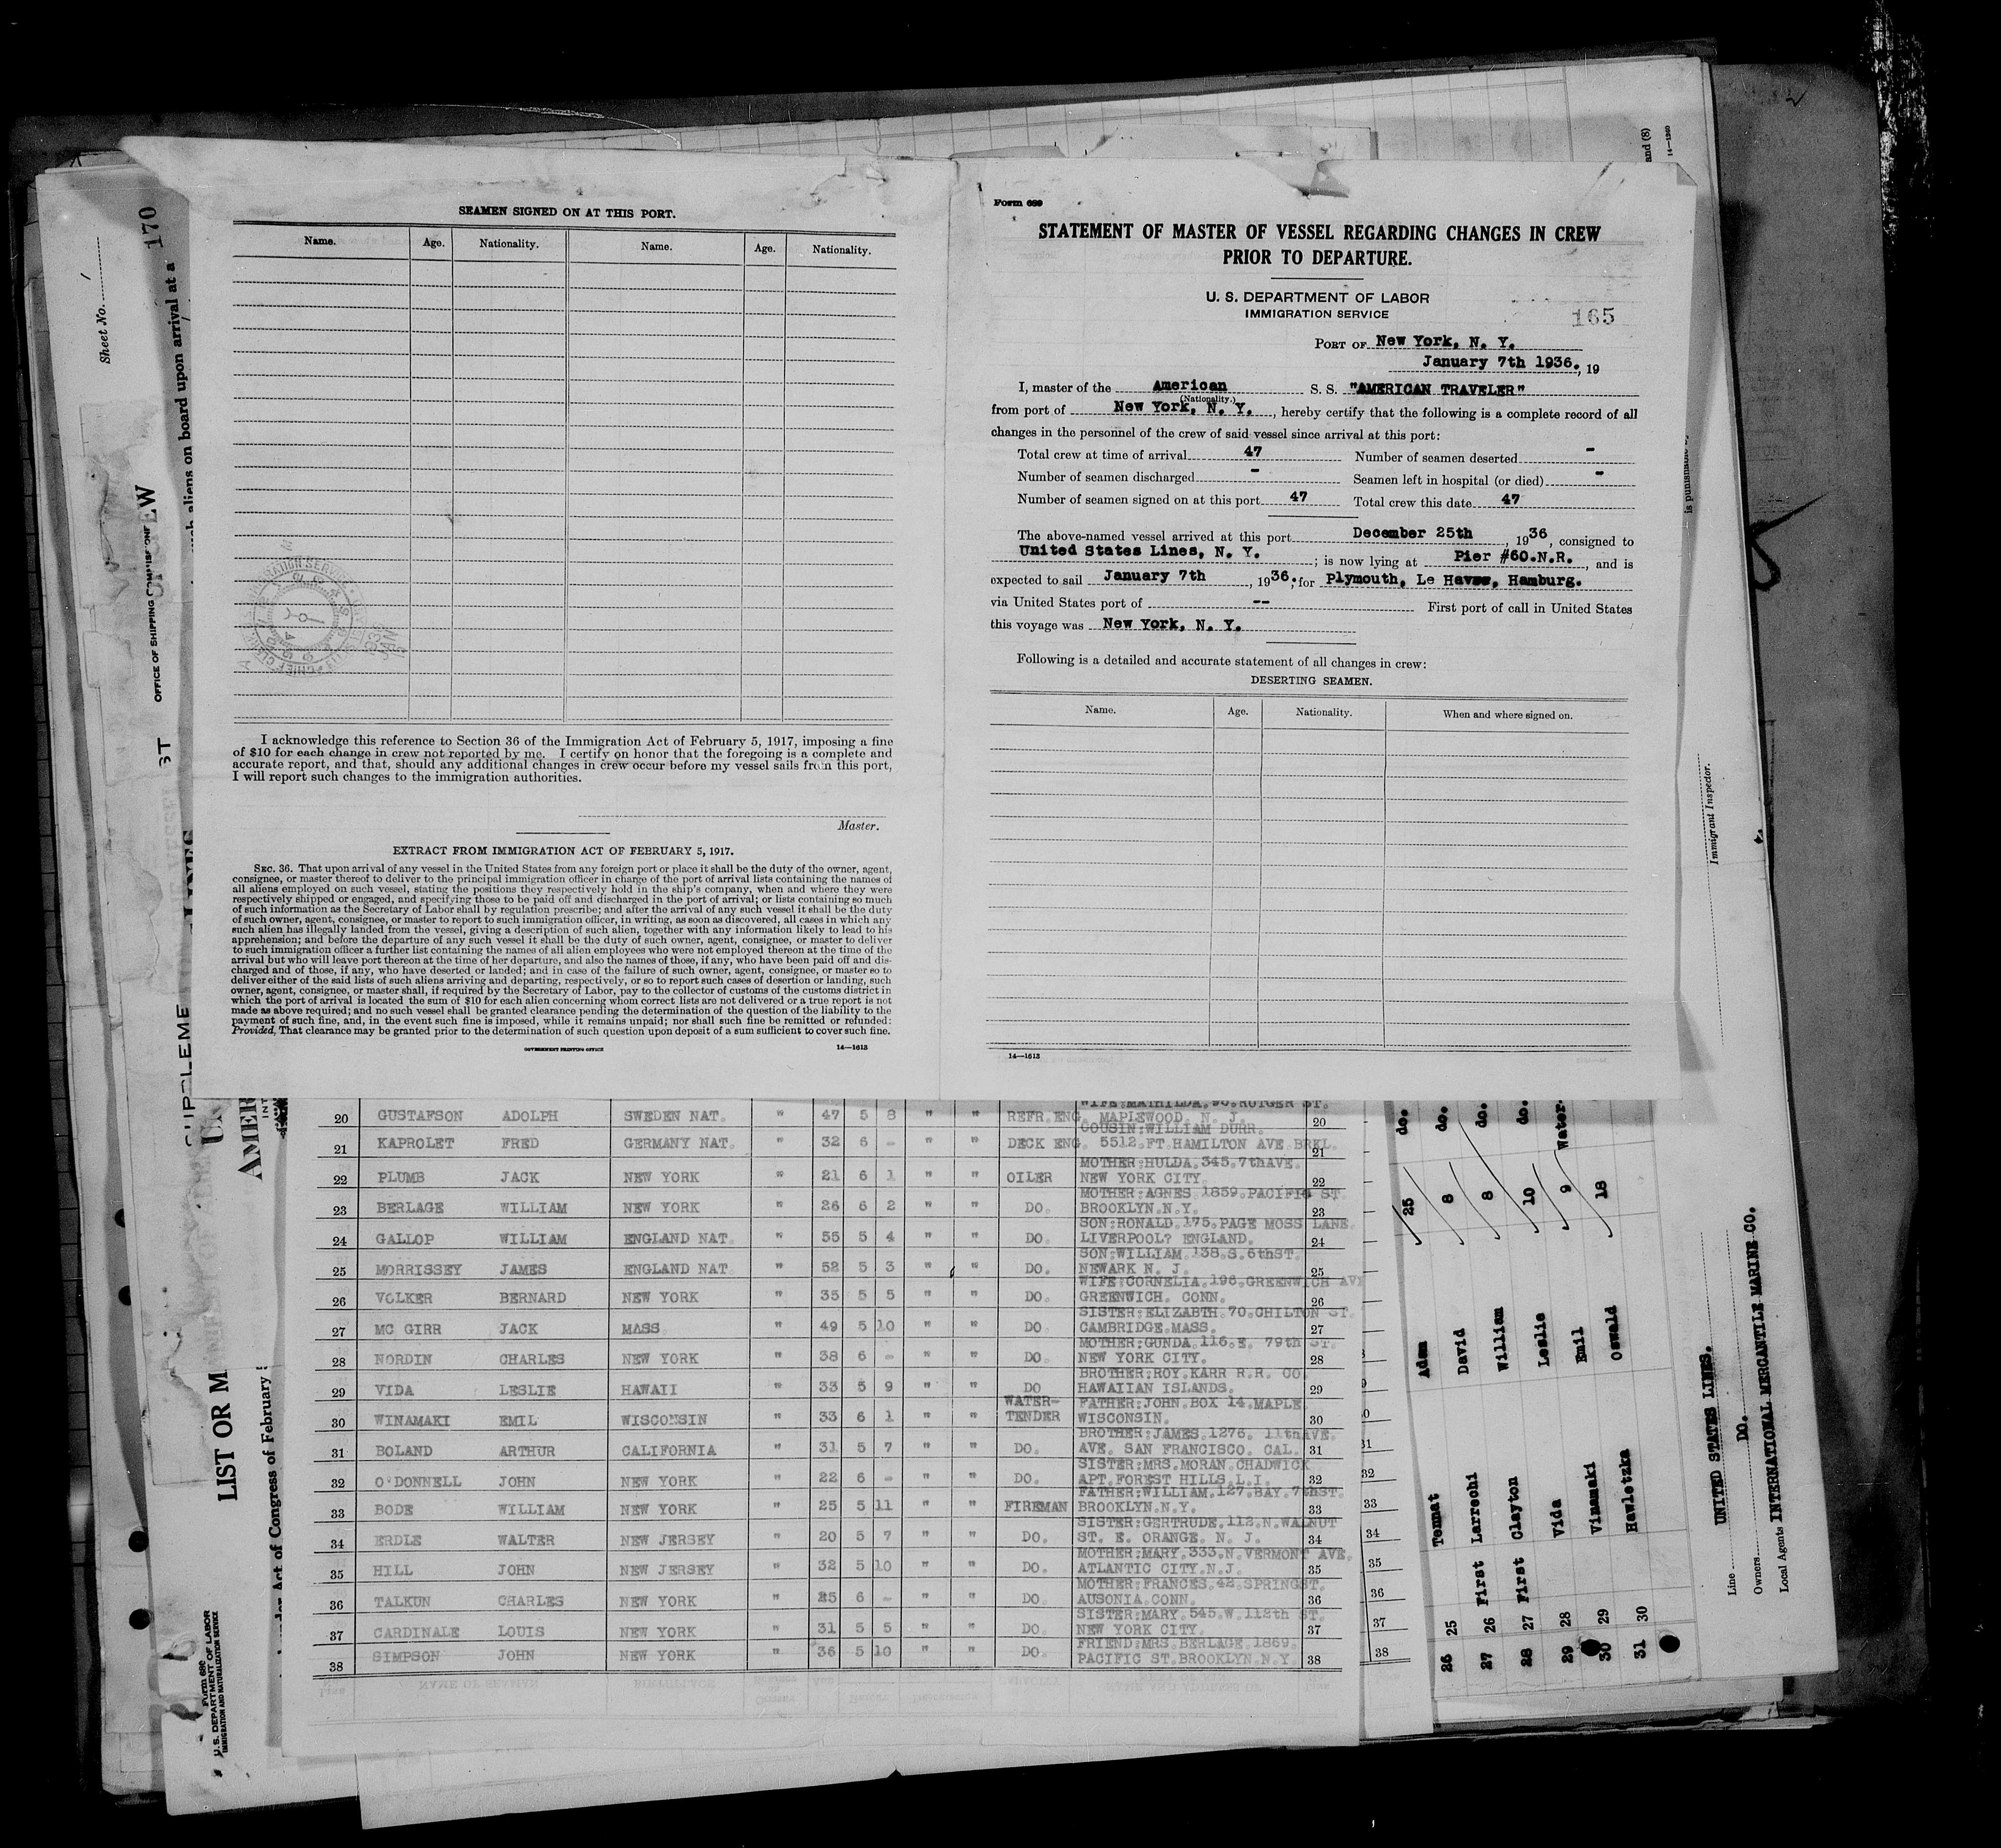 SEAMEN SIGNED ON AT THIS PORT.
Name. Age. Nationality. Name. Age. Nationality.
I acknowledge this reference to Section 36 of the Immigration Act of February 5, 1917, imposing a fine
of $10 for each change in crew not reported by me. I certify on honor that the foregoing is a complete and
accurate report, and that, should any additional changes in crew occur before my vessel sails from this port,
I will report such changes to the immigration authorities.
Master.
EXTRACT FROM IMMIGRATION ACT OF FEBRUARY 5, 1917.
SEC. 36. That upon arrival of any vessel in the United States from any foreign port or place it shall be the duty of the owner, agent,
consignee, or master thereof to deliver to the principal immigration officer in charge of the port of arrival lists containing the names of
all aliens employed on such vessel, stating the positions they respectively hold in the ship's company, when and where they were
respectively shipped or engaged, and specifying those to be paid off and discharged in the port of arrival; or lists containing so much
of such information as the Secretary of Labor shall by regulation prescribe; and after the arrival of any such vessel it shall be the duty
of such owner, agent, consignee, or master to report to such immigration officer, in writing, as soon as discovered, all cases in which any
such alien has illegally landed from the vessel, giving a description of such alien, together with any information likely to lead to his
apprehension; and before the departure of any such vessel it shall be the duty of such owner, agent, consignee, or master to deliver
to such immigration officer a further list containing the names of all alien employees who were not employed thereon at the time of the
arrival but who will leave port thereon at the time of her departure, and also the names of those, if any, who have been paid off and dis-
charged and of those, if any, who have deserted or landed; and in case of the failure of such owner, agent, consignee, or master so to
deliver either of the said lists of such aliens arriving and departing, respectively, or so to report such cases of desertion or landing, such
owner, agent, consignee, or master shall, if required by the Secretary of Labor, pay to the collector of customs of the customs district in
which the port of arrival is located the sum of $10 for each alien concerning whom correct lists are not delivered or a true report is not
made as above required; and no such vessel shall be granted clearance pending the determination of the question of the liability to the
payment of such fine, and, in the event such fine is imposed, while it remains unpaid; nor shall such fine be remitted or refunded:
Provided, That clearance may be granted prior to the determination of such question upon deposit of a sum sufficient to cover such fine.
GOVERNMENT PRINTING OFFICE 14—1613
Form 689
STATEMENT OF MASTER OF VESSEL REGARDING CHANGES IN CREW
PRIOR TO DEPARTURE.
U. S. DEPARTMENT OF LABOR
IMMIGRATION SERVICE
165
PORT OF New York, N. Y.
January 7th 1936., 19
I, master of the American S. S. "AMERICAN TRAVELER"
(Nationality.)
from port of New York, N. Y., hereby certify that the following is a complete record of all
changes in the personnel of the crew of said vessel since arrival at this port:
Total crew at time of arrival 47 Number of seamen deserted -
Number of seamen discharged - Seamen left in hospital (or died) -
Number of seamen signed on at this port 47 Total crew this date 47
The above-named vessel arrived at this port December 25th, 1936, consigned to
United States Lines, N. Y.; is now lying at Pier #60.N.R., and is
expected to sail January 7th, 1936; for Plymouth, Le Havre, Hamburg.
via United States port of -- First port of call in United States
this voyage was New York, N. Y.
Following is a detailed and accurate statement of all changes in crew:
DESERTING SEAMEN.
Name. Age. Nationality. When and where signed on.
14—1613
WIFE:MATHILDA.
20 GUSTAFSON ADOLPH SWEDEN NAT. " 47 5 8 " " REFR.ENG. MAPLEWOOD. N. J. 20
COUSIN:WILLIAM DURR.
21 KAPROLET FRED GERMANY NAT. " 32 6 - " " DECK ENG. 5512.FT.HAMILTON AVE.BRKL. 21
MOTHER:HULDA.345.7thAVE.
22 PLUMB JACK NEW YORK " 21 6 1 " " OILER NEW YORK CITY. 22
MOTHER:AGNES 1859.PACIFIC ST.
23 BERLAGE WILLIAM NEW YORK " 26 6 2 " " DO. BROOKLYN.N.Y. 23
SON:RONALD.175.PAGE MOSS LANE.
24 GALLOP WILLIAM ENGLAND NAT. " 55 5 4 " " DO. LIVERPOOL? ENGLAND. 24
SON:WILLIAM.138.S.6thST.
25 MORRISSEY JAMES ENGLAND NAT " 52 5 3 " " DO. NEWARK N. J. 25
WIFE:CORNELIA.196.GREENWICH AVE
26 VOLKER BERNARD NEW YORK " 35 5 5 " " DO. GREENWICH. CONN. 26
SISTER:ELIZABTH.70.CHILTON ST.
27 MC GIRR JACK MASS " 49 5 10 " " DO CAMBRIDGE.MASS. 27
MOTHER:GUNDA.116.E. 79th ST.
28 NORDIN CHARLES NEW YORK " 38 6 - " " DO NEW YORK CITY. 28
BROTHER:ROY.KARR R.R. CO.
29 VIDA LESLIE HAWAII " 33 5 9 " " DO HAWAIIAN ISLANDS. 29
WATER- FATHER:JOHN.BOX 14.MAPLE
30 WINAMAKI EMIL WISCONSIN " 33 6 1 " " TENDER WISCONSIN. 30
BROTHER:JAMES.1276. 11thAVE.
31 BOLAND ARTHUR CALIFORNIA " 31 5 7 " " DO. AVE. SAN FRANCISCO. CAL. 31
SISTER:MRS.MORAN.CHADWICK
32 O'DONNELL JOHN NEW YORK " 22 6 - " " DO. APT.FOREST HILLS.L.I. 32
FATHER:WILLIAM.127.BAY.7thST.
33 BODE WILLIAM NEW YORK " 25 5 11 " " FIREMAN BROOKLYN.N.Y. 33
SISTER:GERTRUDE.112.N.WALNUT
34 ERDLE WALTER NEW JERSEY " 20 5 7 " " DO. ST. E. ORANGE. N. J. 34
MOTHER:MARY.333.N.VERMONT AVE.
35 HILL JOHN NEW JERSEY " 32 5 10 " " DO. ATLANTIC CITY.N.J. 35
MOTHER:FRANCES.42.SPRINGST.
36 TALKUN CHARLES NEW YORK " 25 6 - " " DO AUSONIA.CONN. 36
SISTER:MARY.545.W.112th ST.
37 CARDINALE LOUIS NEW YORK " 31 5 5 " " DO. NEW YORK CITY. 37
FRIEND:MRS.BERLAGE.1869.
38 SIMPSON JOHN NEW YORK " 36 5 10 " " DO. PACIFIC ST.BROOKLYN.N.Y. 38
31
32
33
34
35
36
37
38
26 25 Tennat Adam 25 do.
27 26 First Larrechi David 8 do.
28 27 First Clayton William 8 do.
29 28 Vida Leslie 10 do.
30 29 Vinamaki Emil 9 Water-
31 30 Hawletzka Oswald 18
Line UNITED STATES LINES.
Owners DO.
Local Agents INTERNATIONAL MERCANTILE MARINE CO.
Immigrant Inspector.
is punishable
and (8)
14—1240
Sheet No.
170
such aliens on board upon arrival at a
OFFICE OF SHIPPING COMMISSIONE
SUPPLEME
LIST OR M
under Act of Congress of February
Form 680
U. S. DEPARTMENT OF LABOR
IMMIGRATION AND NATURALIZATION SERVICE